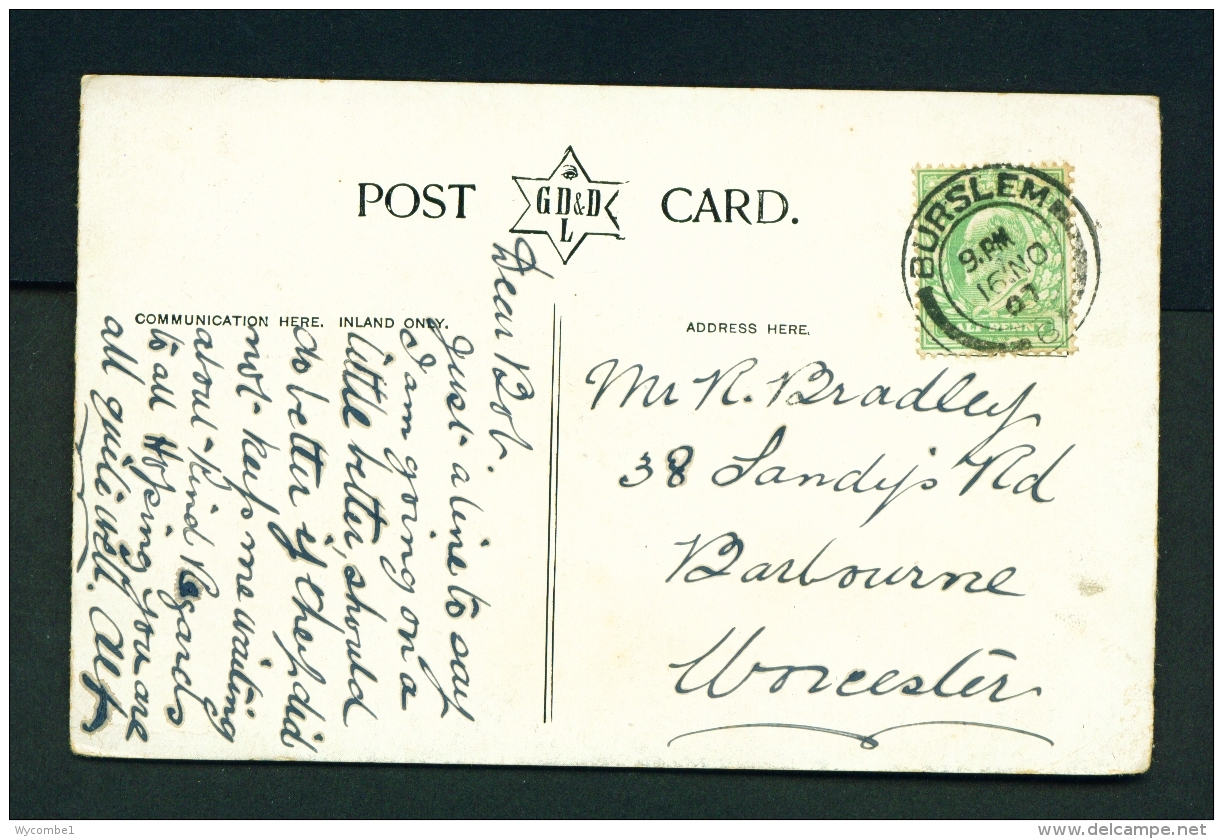 POST CARD.
GD&D
L
COMMUNICATION HERE. INLAND ONLY.
ADDRESS HERE.
BURSLEM
9.PM
16 NO
07
HALFPENNY
Dear Bob.
Just a line to say
I am going on a
little better, should
do better if they did
not keep me waiting
about. Kind Regards
to all Hoping you are
all quite well. Alf
Mr R. Bradley
38 Sandys Rd
Barbourne
Worcester
Wycombe1
delcampe.net